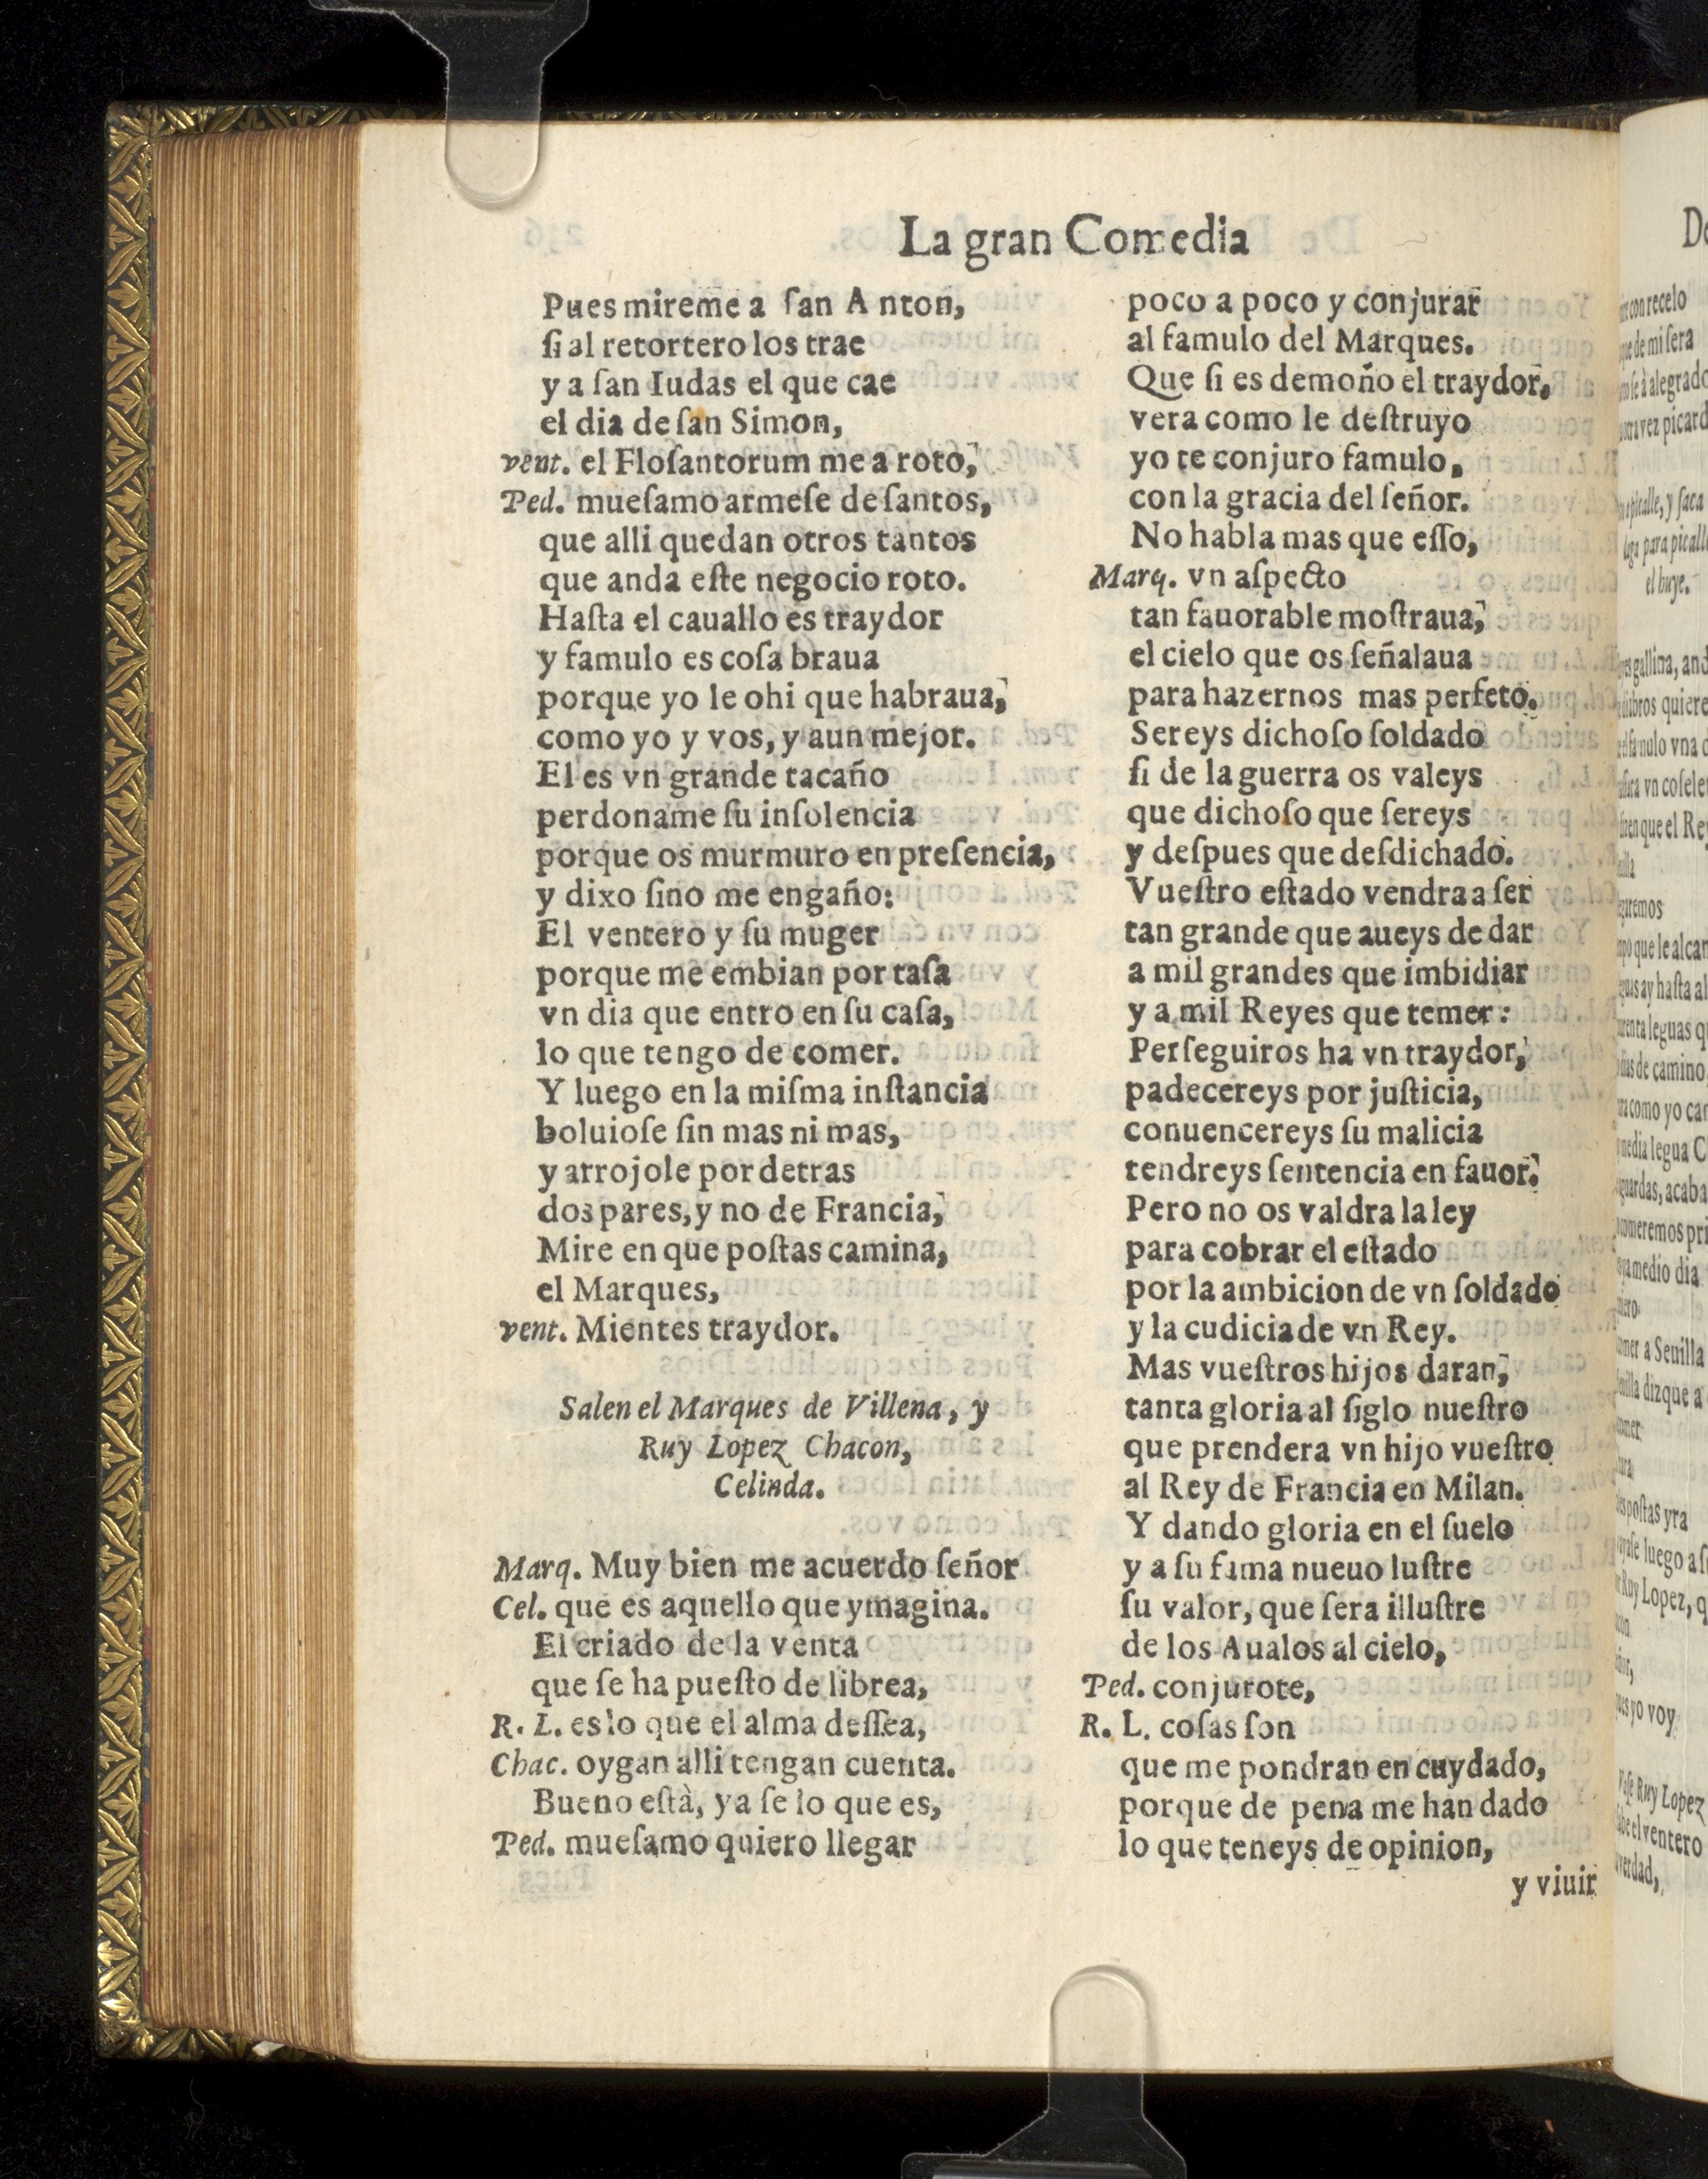 La gran Comedia
Pues mireme a ſan Anton,
ſi al retortero los trae
y a ſan Iudas el que cae
el dia de ſan Simon,
vent. el Floſantorum me a roto,
Ped. mueſamo armeſe de ſantos,
que alli quedan otros tantos
que anda eſte negocio roto.
Haſta el cauallo es traydor
y famulo es coſa braua
porque yo le ohi que habraua,
como yo y vos, y aun mejor.
El es vn grande tacaño
perdoname ſu inſolencia
porque os murmuro en preſencia,
y dixo ſino me engaño:
El ventero y ſu muger
porque me embian por taſa
vn dia que entro en ſu caſa,
lo que tengo de comer.
Y luego en la miſma inſtancia
boluioſe ſin mas ni mas,
y arrojole por detras
dos pares, y no de Francia,
Mire en que poſtas camina,
el Marques,
vent. Mientes traydor.
Salen el Marques de Villena, y
Ruy Lopez Chacon,
Celinda.
Marq. Muy bien me acuerdo ſeñor
Cel. que es aquello que ymagina.
El criado de la venta
que ſe ha pueſto de librea,
R. L. es lo que el alma deſſea,
Chac. oygan alli tengan cuenta.
Bueno eſtà, ya ſe lo que es,
Ped. mueſamo quiero llegar
poco a poco y conjurar
al famulo del Marques.
Que ſi es demoño el traydor,
vera como le deſtruyo
yo te conjuro famulo,
con la gracia del ſeñor.
No habla mas que eſſo,
Marq. vn aſpecto
tan fauorable moſtraua,
el cielo que os ſeñalaua
para hazernos mas perfeto.
Sereys dichoſo ſoldado
ſi de la guerra os valeys
que dichoſo que ſereys
y deſpues que deſdichado.
Vueſtro eſtado vendra a ſer
tan grande que aueys de dar
a mil grandes que imbidiar
y a mil Reyes que temer:
Perſeguiros ha vn traydor,
padecereys por juſticia,
conuencereys ſu malicia
tendreys ſentencia en fauor.
Pero no os valdra la ley
para cobrar el eſtado
por la ambicion de vn ſoldado
y la cudicia de vn Rey.
Mas vueſtros hijos daran,
tanta gloria al ſiglo nueſtro
que prendera vn hijo vueſtro
al Rey de Francia en Milan.
Y dando gloria en el ſuelo
y a ſu fama nueuo luſtre
ſu valor, que ſera illuſtre
de los Aualos al cielo,
Ped. conjurote,
R. L. coſas ſon
que me pondran en cuydado,
porque de pena me han dado
lo que teneys de opinion,
y viuir